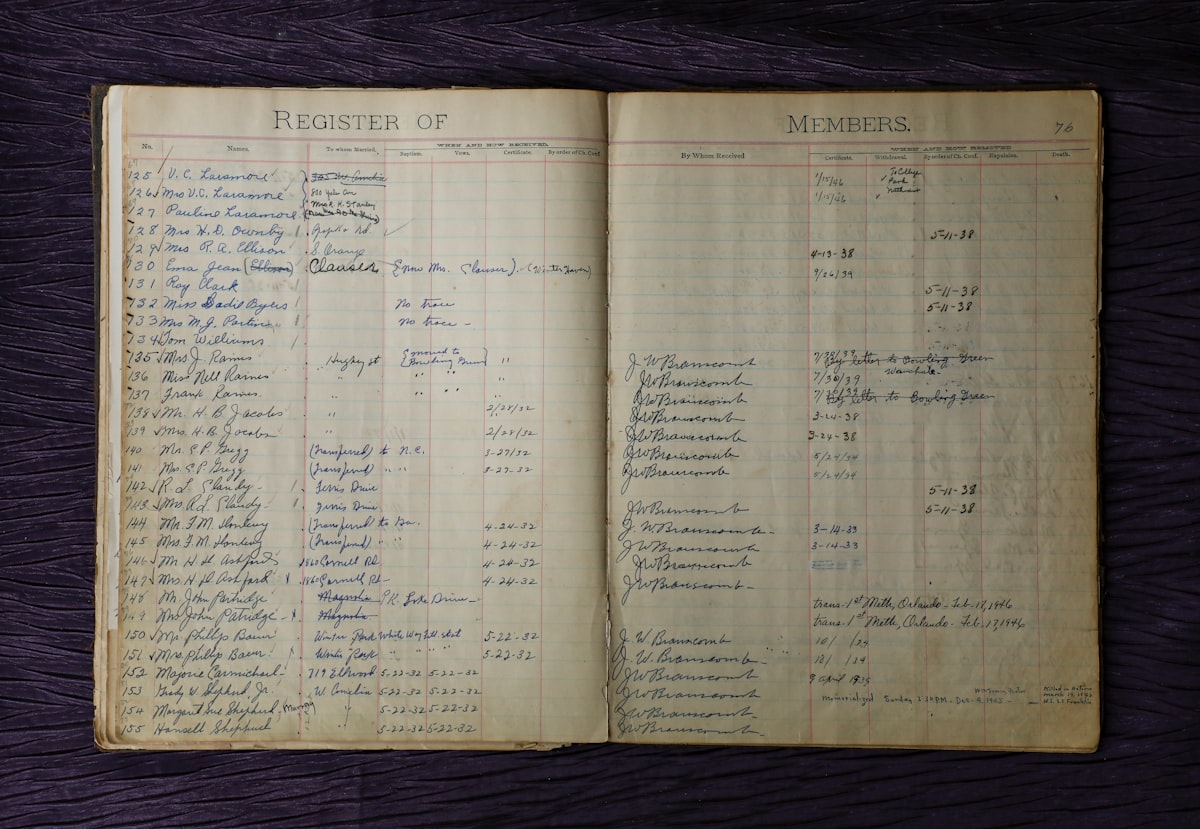 REGISTER OF MEMBERS. 76
No. Names. To whom Married. WHEN AND HOW RECEIVED. By Whom Received WHEN AND HOW REMOVED.
Baptism. Vows. Certificate. By order of Ch. Conf. Certificate. Withdrawal. By order of Ch. Conf. Expulsion. Death.
125 V. C. Laramore 1/15/46 To College Park
126 Mrs V. C. Laramore 1/15/46
Mrs R. K. Stanley
127 Pauline Laramore
128 Mrs H. D. Ownby 5-11-38
129 Mrs R. A. Ellison S. Orange 4-13-38
130 Ema Jean (Ellison) Clauser (now Mrs. Clauser) (Winter Haven) 9/26/39
131 Roy Clark 5-11-38
132 Miss Sadie Byers No trace 5-11-38
133 Mrs M. J. No trace -
134 Tom Williams
135 Mrs J. Raines Hughey st (moved to Bowling Green) " J W Branscomb 7/28/39 By letter to Bowling Green
Wauchula
136 Miss Nell Raines " " " J W Branscomb 7/30/39
137 Frank Raines " " " " J W Branscomb letter to Bowling Green
138 Mr. H. B. Jacobs " 2/28/32 J W Branscomb 3-24-38
139 Mrs. H. B. Jacobs " 2/28/32 J W Branscomb 3-24-38
140 Mr. S. P. Gregg (Transferred) to N.C. 3-27/32 J W Branscomb 5/24/34
141 Mrs. S. P. Gregg (Transferred) " " 3-27-32 J W Branscomb 5/24/34
142 R. L. Ferris Drive 5-11-38
143 Mrs. R. L. Ferris Drive J W Branscomb 5-11-38
144 Mr. F. M. (Transferred) to Ga. 4-24-32 J. W Branscomb - 3-14-33
145 Mrs. F. M. (Transferred) " " 4-24-32 J W Branscomb 3-14-33
146 Mr. H. H. Ashford 1860 Cornell Rd. 4-24-32 J W Branscomb
147 Mrs H. H. Ashford 1860 Cornell Rd - 4-24-32 J W Branscomb -
148 Mr. John Partridge Magnolia Lake Drive - trans. 1st Meth, Orlando - Feb. 17, 1946
149 Mrs John Patridge - Magnolia trans. 1st Meth, Orlando - Feb. 17, 1946
150 Mr Phillip Winter Park 5-22-32 J. W. Branscomb
151 Mrs. Philip Winter Park " " " " 5-22-32 J. W. Branscomb -
152 Majorie Carmichael - 719 Ellwood 5-22-32 5-22-32 J W Branscomb 9 April 1935
153 Grady W. Shepherd, Jr. W. Amelia 5-22-32 5-22-32 J W Branscomb Memorialized Sunday Killed in Action March 19, U.S.S. Franklin
154 Margaret Sue Shepherd " 5-22-32 5-22-32 J W Branscomb -
155 Hansell Shepherd 5-22-32 5-22-32 J W Branscomb -